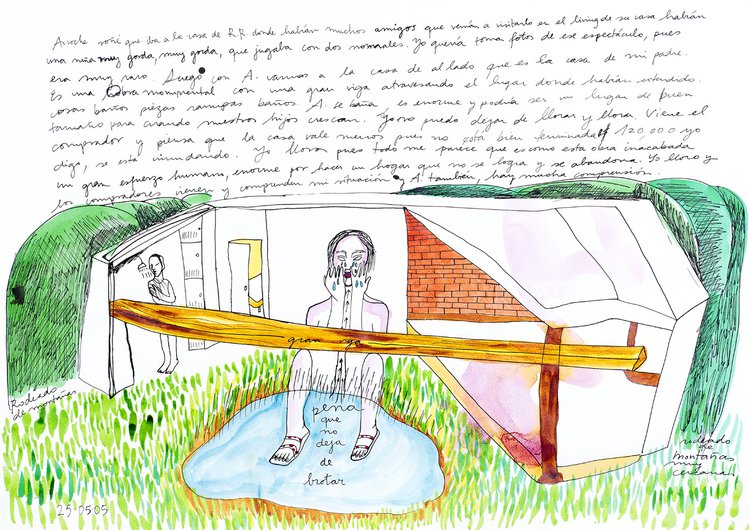 Anoche soñé que iba a la casa de R.R. donde habían muchos amigos que venían a visitarlo en el living de su casa habían
una niña muy gorda, muy gorda, que jugaba con dos normales. Yo quería tomar fotos de ese espectáculo, pues
era muy raro. Luego con A. vamos a la casa de al lado que es la casa de mi padre.
Es una Obra monumental con una gran viga atravesando el lugar donde habían extendido
cosas baños piezas rampas baños. A. se baña, es enorme y podría ser un lugar de buen
tamaño para cuando nuestros hijos crezcan. Yo no puedo dejar de llorar y llorar. Viene el
comprador y piensa que la casa vale menos pues no está bien terminada 120,000 yo
digo, se está inundando. Yo lloro pues todo me parece que es como esta obra inacabada
un gran esfuerzo humano, enorme por hacer un hogar que no se logra y se abandona. Yo lloro y
los compradores vienen y comprenden mi situación y A. también, hay mucha comprensión.
gran viga
Rodeado
de montañas
pena
que
no
deja
de
brotar
rodeado
de
montañas
muy
cercanas
25.05.05